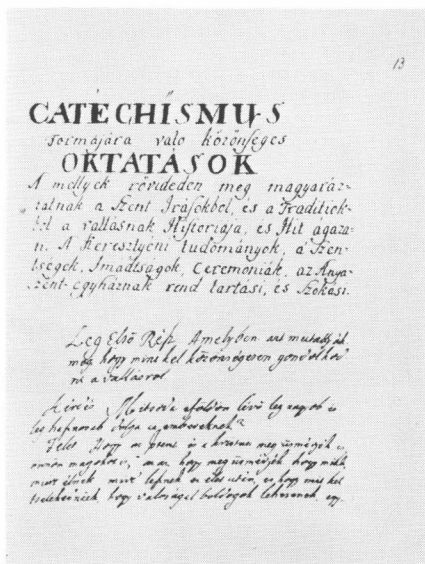 13
CATECHISMUS
Formájára való közönséges
OKTATÁSOK
A mellyek rövideden meg magyaráz-
tatnak a Szent Irásokbol, és a Traditiók-
bol a vallásnak Historiaja, és Hit agaza-
A Keresztyeni tudományok, a Szen-
tségek, Imadtságok, Ceremoniák, az Anya-
szent-egyháznak rend tartasi, és Szokási.
Leg Első Rész Amelyben azt mutattyák
meg hogy mint kel közönségesen gondolkod
ni a vallasrol
Kérdés földön lévő leg nagyob
leg dolga az embereknek?
Felelet Hogy az Istent is meg
hogy meg hogy mitől,
mivé lesznek az élet után, és hogy mit kel
hogy valosággal boldogok lehessenek